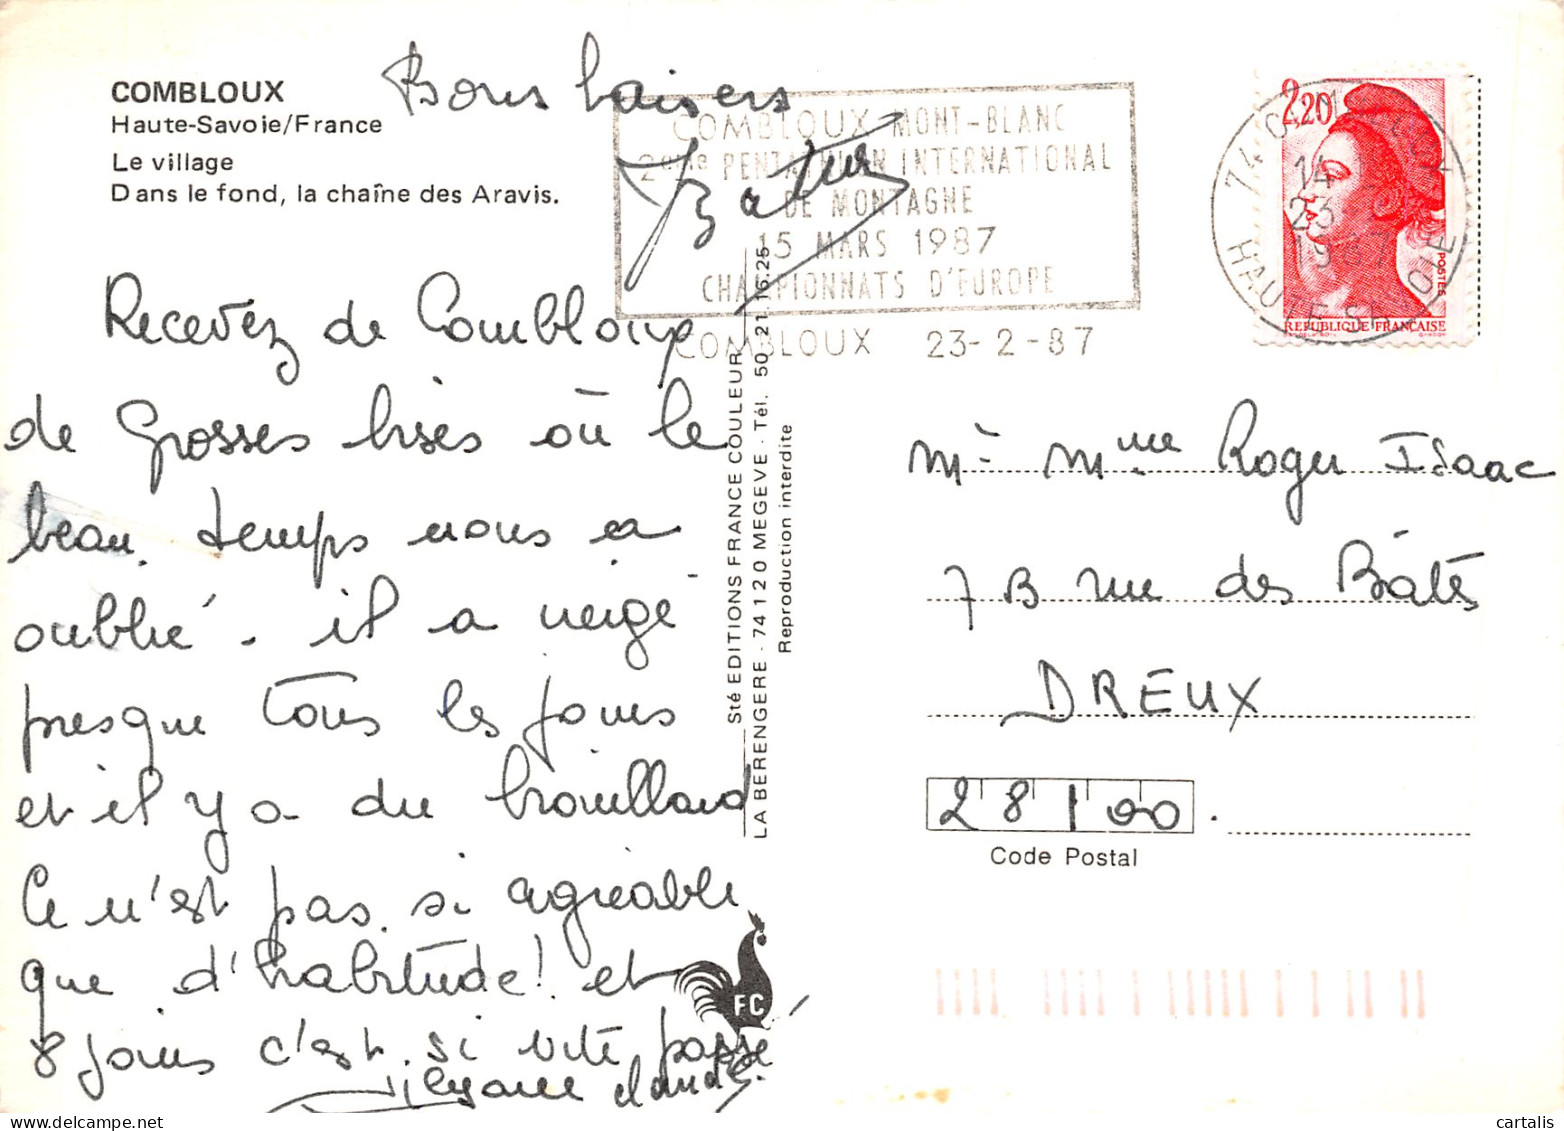 COMBLOUX
Haute-Savoie/France
Le village
Dans le fond, la chaîne des Aravis.
Bons baisers
COMBLOUX MONT-BLANC
2ème PENTATHLON INTERNATIONAL
DE MONTAGNE
15 MARS 1987
CHAMPIONNATS D'EUROPE
COMBLOUX 23-2-87
2,20
POSTES
REPUBLIQUE FRANCAISE
74
14
23
1987
HAUTE SAVOIE
Recevez de Combloux
de grosses bises où le
beau temps nous a
oublié. il a neigé
presque tous les jours
et il y a du brouillard
Ce n'est pas si agréable
que d'habitude! et
8 jours c'est si vite passé
Claude
Sté EDITIONS FRANCE COULEUR
LA BERENGERE - 74120 MEGEVE - Tél. 50 21.16.25
Reproduction interdite
FC
Mr Mme Roger Isaac
7B rue des Bâtés
DREUX
28100
Code Postal
www.delcampe.net
cartalis